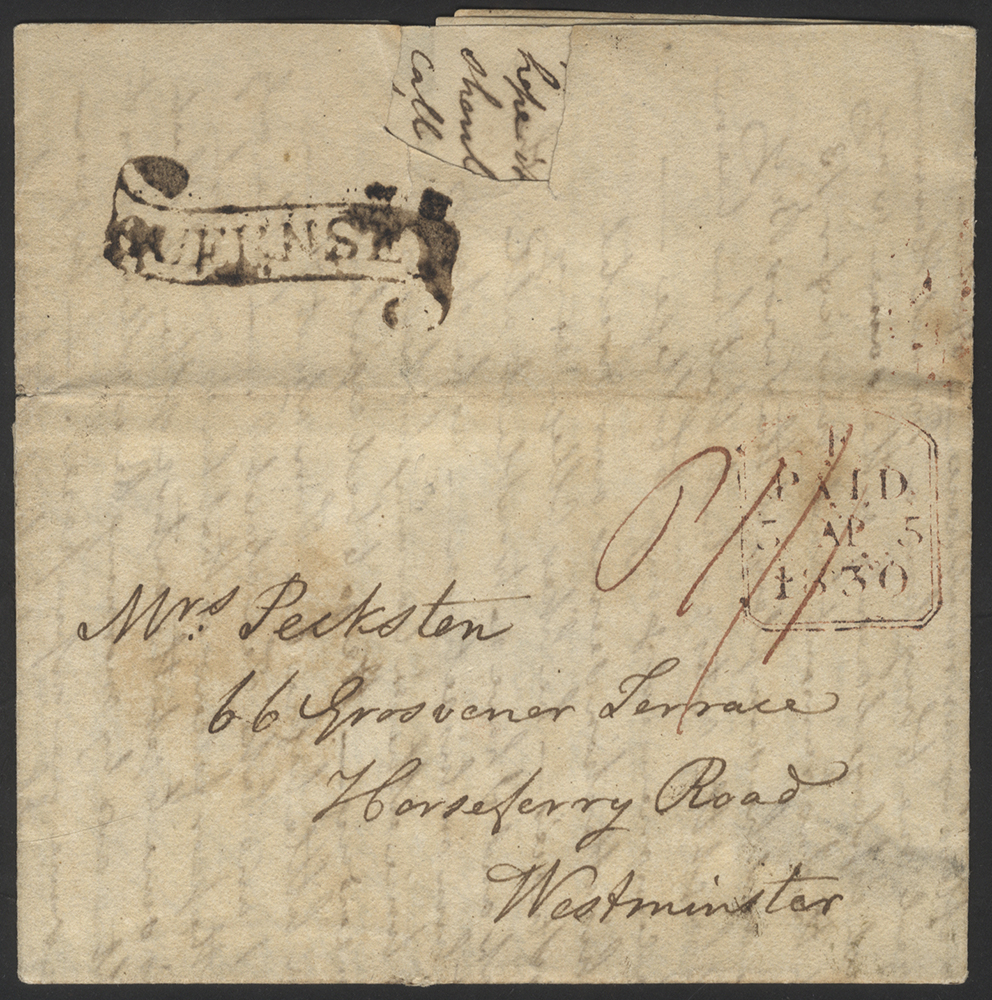 hope it
shoul
call
GUERNSEY
P 1/11
F
PAID
5 AP 5
1830
Mrs. Peckston
66 Grosvener Terrace
Horseferry Road
Westminster